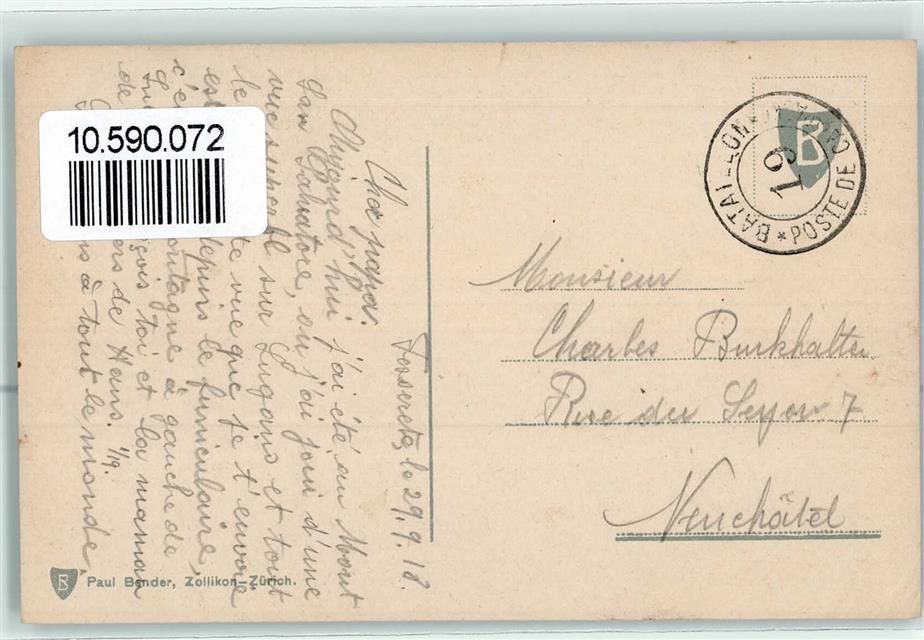 10.590.072
BATAILLON
* POSTE DE CAMPAGNE
19
B
Monsieur
Charles Burkhalter
Rue du Seyon 7
Neuchâtel
le 29.9.18.
Cher papa.
Aujourd'hui j'ai été au Mont
San Salvatore, où j'ai joui d'une
vue superbe sur Lugano et tout
le te vue que je t'envoie
es depuis le funiculaire,
c'e ontagne à gauche de
çois toi et la maman
de ers de Hans.
s à tout le monde.
B
Paul Bender, Zollikon-Zürich.